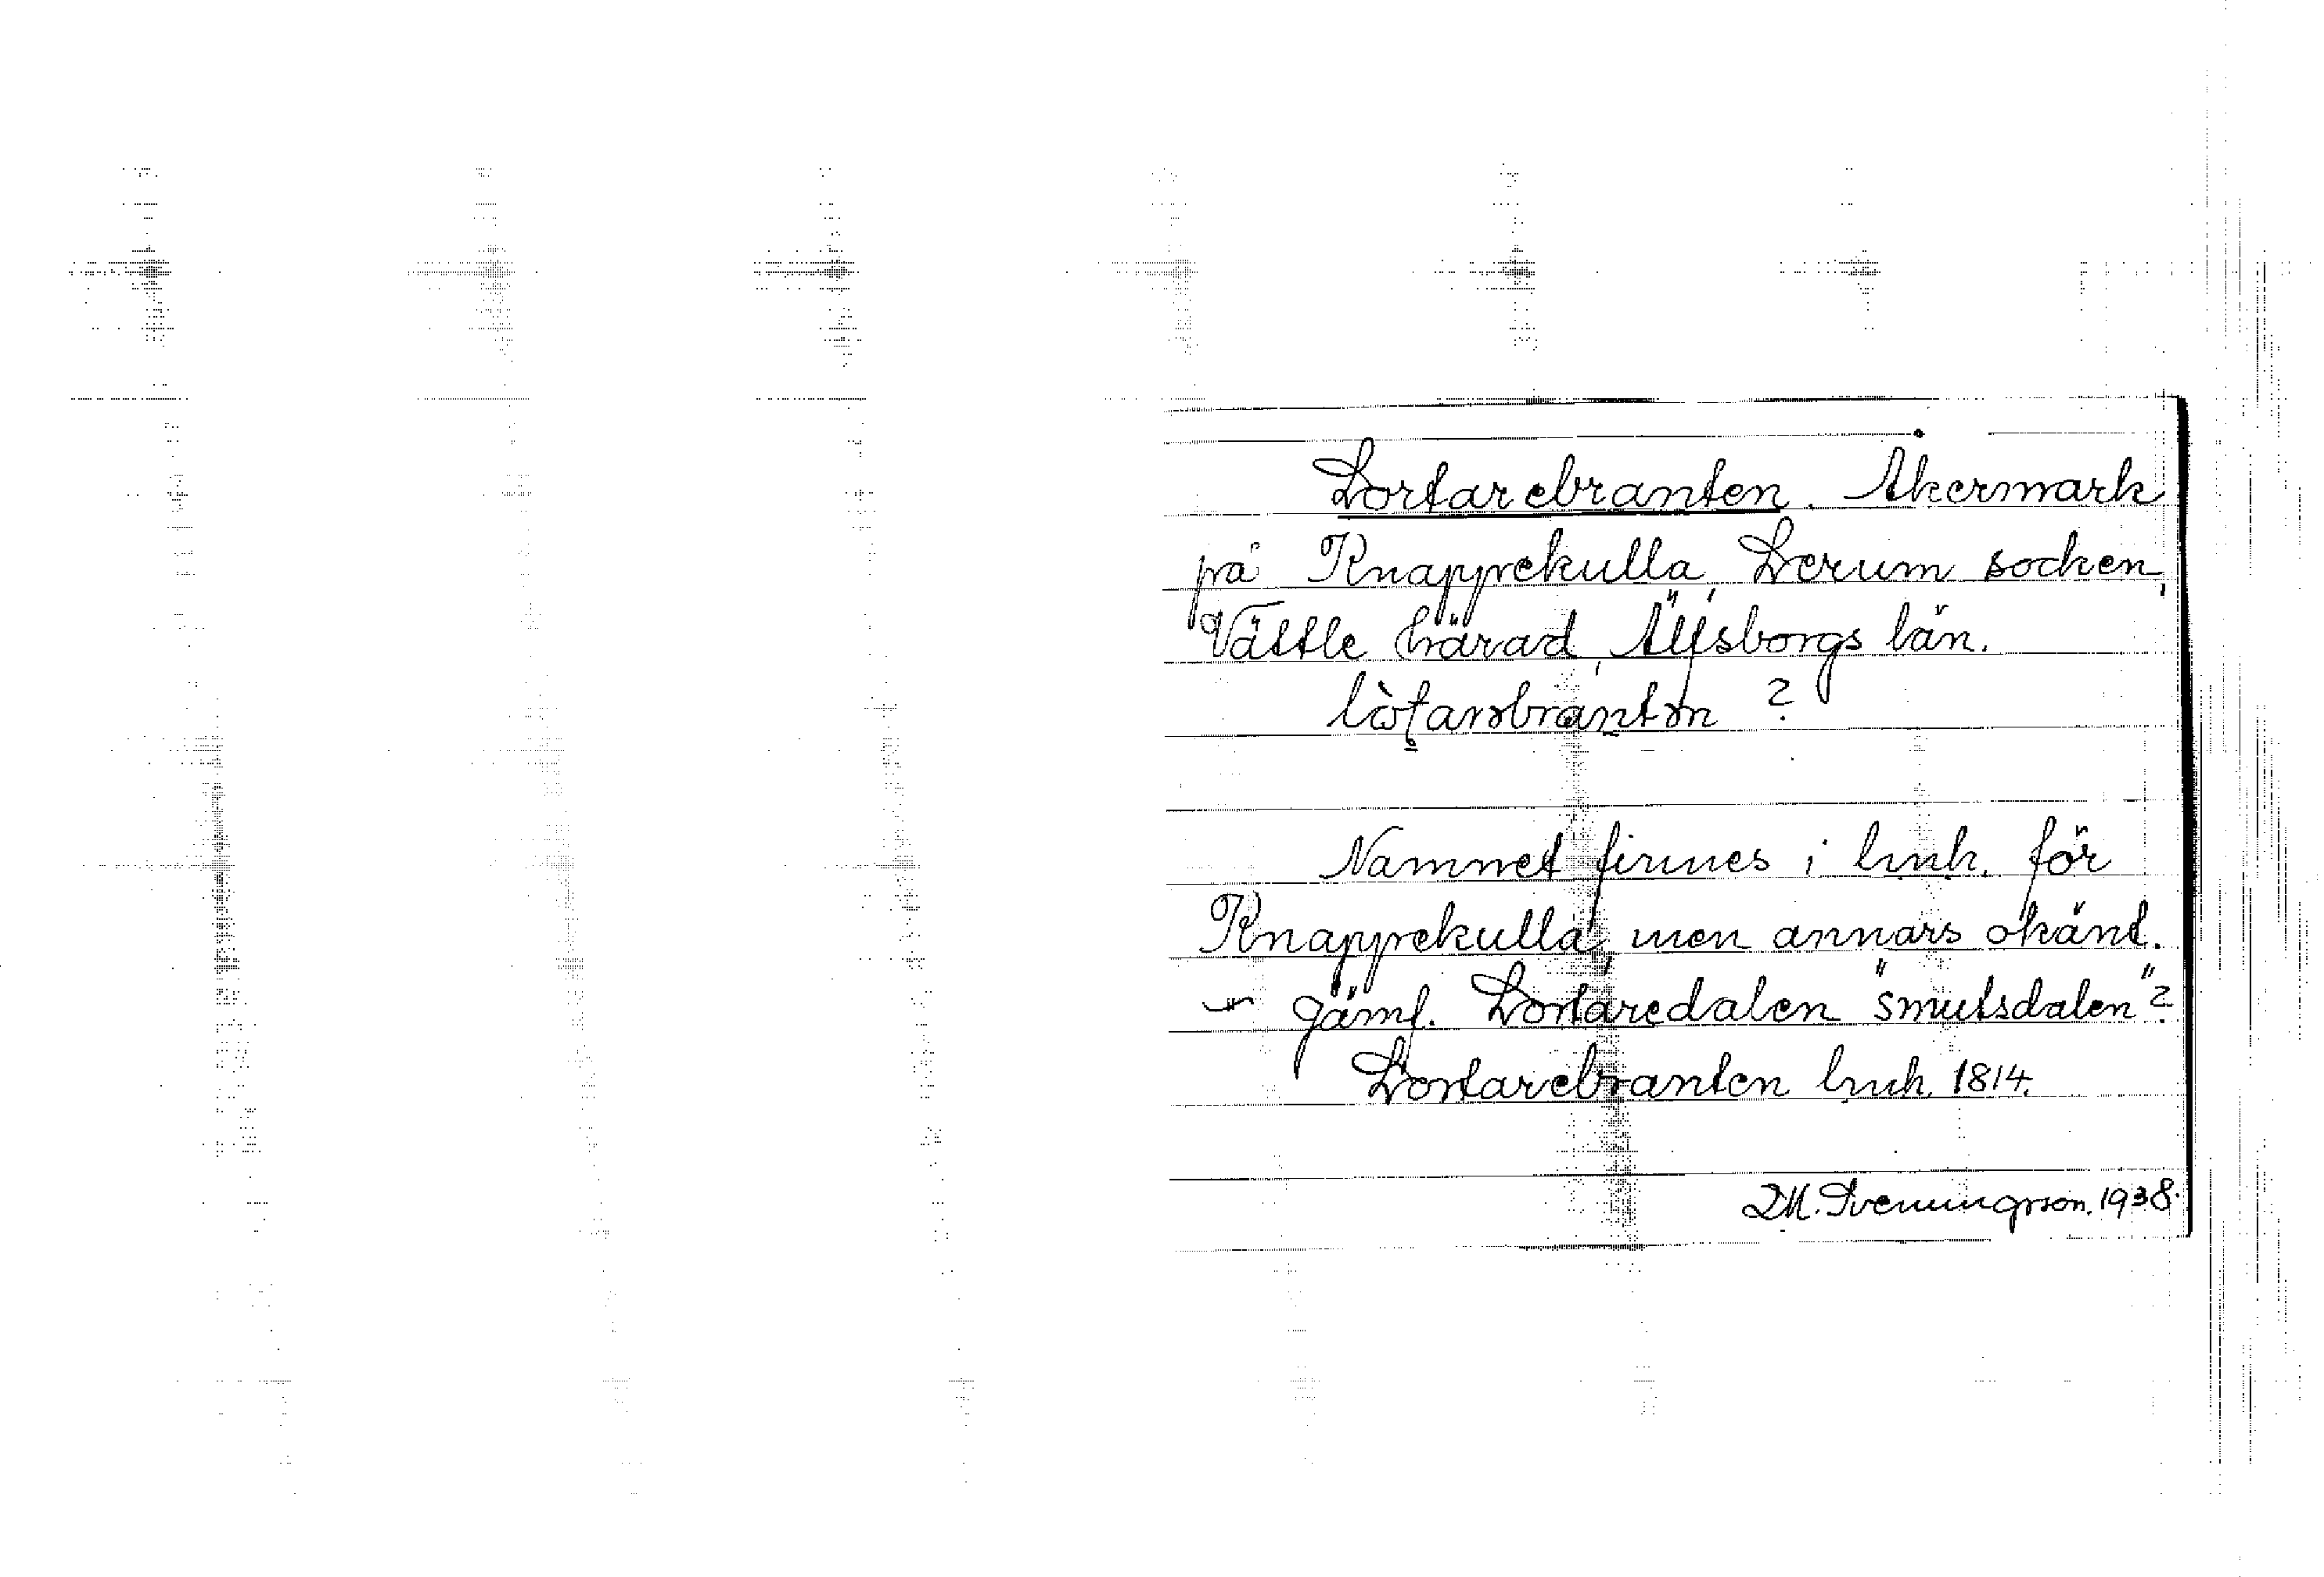 Lortarebranten. Åkermark
på Knapprekulla, Lerum socken,
Vättle härad, Älfsborgs län.
?
Namnet finnes i lmk. för
Knapprekulla, men annars okänt.
– Jämf. Lortaredalen "smutsdalen"?
Lortarebranten lmk. 1814.
D.M. Svenningsson. 1938.